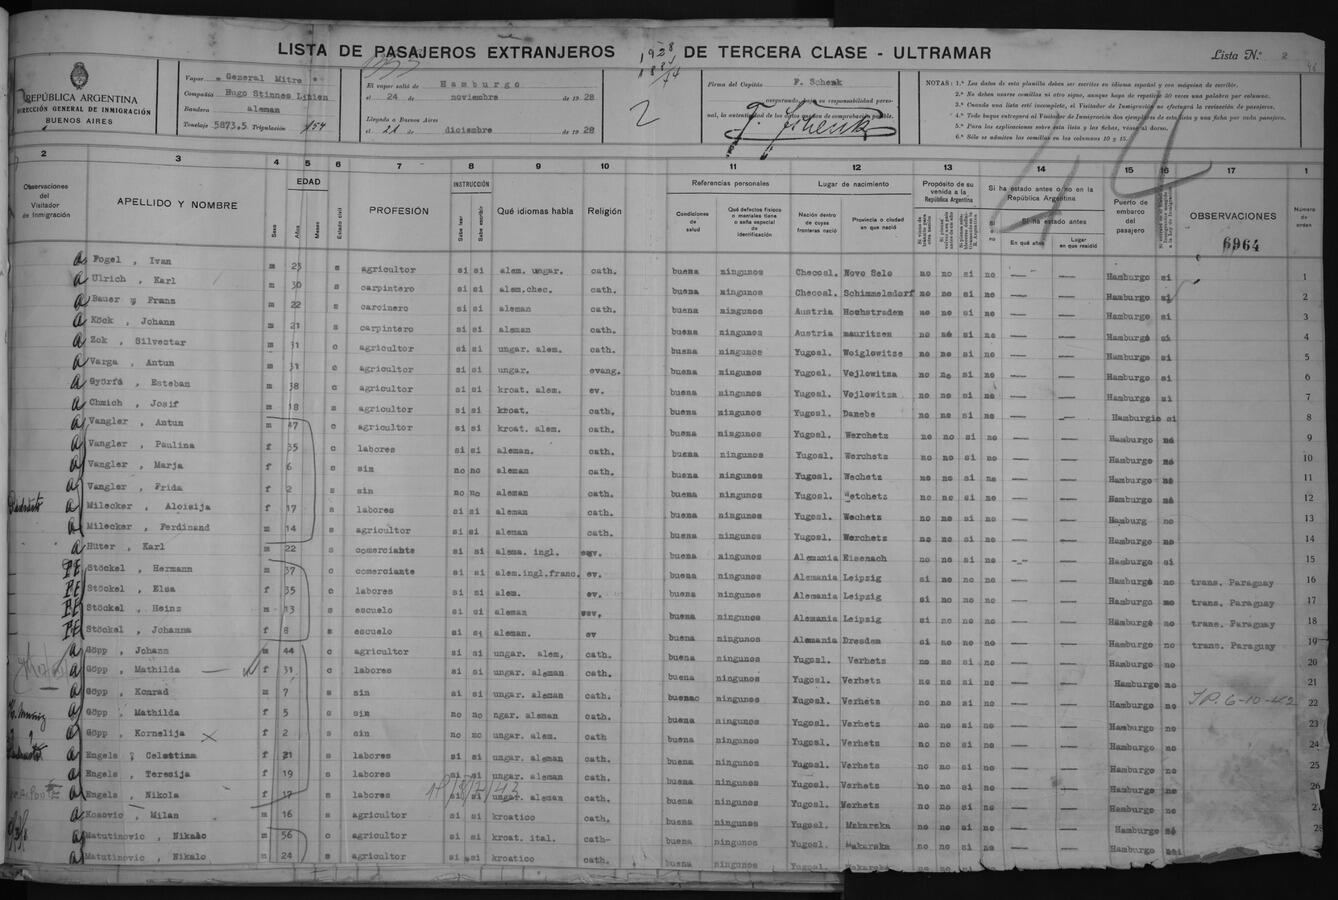 LISTA DE PASAJEROS EXTRANJEROS DE TERCERA CLASE - ULTRAMAR
Lista N.º 2
REPÚBLICA ARGENTINA
DIRECCIÓN GENERAL DE INMIGRACIÓN
BUENOS AIRES
Vapor "General Mitre"
Compañía Hugo Stinnes Linien
Bandera aleman
Tonelaje 5873,5 Tripulación 154
El vapor salió de Hamburgo
el 24 de noviembre de 1928
Llegada a Buenos Aires
el 21 de diciembre de 1928
2
Firma del Capitán F. Schenk
asegurando, bajo su responsabilidad perso-
nal, la autenticidad de los datos
NOTAS: 1.ª Los datos de esta planilla deben ser escritos en idioma español y con máquina de escribir.
2.ª No deben usarse comillas ni otro signo, aunque haya de repetirse 20 veces una palabra por columna.
3.ª Cuando una lista esté incompleta, el Visitador de Inmigración no efectuará la revisación de pasajeros.
4.ª Todo buque entregará al Visitador de Inmigración dos ejemplares de esta lista y una ficha por cada pasajero.
5.ª Para las explicaciones sobre esta lista y las fichas, véase al dorso.
6.ª Sólo se admiten las comillas en las columnas 10 y 15.
44
2 3 4 5 6 7 8 9 10 11 12 13 14 15 16 17 1
Observaciones del Visitador de Inmigración
APELLIDO Y NOMBRE
Sexo
EDAD
Años
Meses
Estado civil
PROFESIÓN
INSTRUCCIÓN
Sabe leer
Sabe escribir
Qué idiomas habla
Religión
Referencias personales
Condiciones de salud
Qué defectos físicos o mentales tiene o seña especial de identificación
Lugar de nacimiento
Nación dentro de cuyas fronteras nació
Provincia o ciudad en que nació
Propósito de su venida a la República Argentina
Si ha estado antes o no en la República Argentina
Si o no
Si ha estado antes
En qué años
Lugar en que residió
Puerto de embarco del pasajero
OBSERVACIONES
6964
Número de orden
Fogel , Ivan m 23 s agricultor si si alem. ungar. cath. buena ningunos Checosl. Novo Selo no no si no Hamburgo si 1
Ulrich , Karl m 30 s carpintero si si alem.chec. cath. buena ningunos Checosl. Schimmelsdorf no no si no Hamburgo si 2
Bauer , Frans m 22 s carcinero si si aleman cath. buena ningunos Austria Hochstradem no no si no Hamburgo si 3
Köck , Johann m 21 s carpintero si si aleman cath. buena ningunos Austria mauritzen no si no Hamburgo si 4
Zok , Silvestar m 31 c agricultor si si ungar. alem. cath. buena ningunos Yugosl. Woiglowitze no no si no Hamburgo si 5
Varga , Antun m 31 c agricultor si si ungar. evang. buena ningunos Yugosl. Vejlowitza no no si no Hamburgo si 6
Györfá , Esteban m 38 c agricultor si si kroat. alem. ev. buena ningunos Yugosl. Vejlowitza no no si no Hamburgo si 7
Chmich , Josif m 18 s agricultor si si kroat. cath. buena ningunos Yugosl. Danebe no no si no Hamburgio si 8
Vangler , Antun m 47 c agricultor si si kroat. alem. cath. buena ningunos Yugosl. Werchetz no no si no Hamburgo 9
Vangler , Paulina f 35 c labores si si aleman. cath. buena ningunos Yugosl. Werchetz no no si no Hamburgo 10
Vangler , Marja f 6 s sin no no aleman cath. buena ningunos Yugosl. Wechetz no no si no Hamburgo 11
Vangler , Frida f 2 s sin no no aleman cath. buena ningunos Yugosl. Wetchetz no no si no Hamburgo no 12
Milecker , Aloisija f 17 s labores si si aleman cath. buena ningunos Yugosl. Wechetz no no si no Hamburg no 13
Milecker , Ferdinand m 14 s agricultor si si aleman cath. buena ningunos Yugosl. Werchetz no no si no Hamburgo no 14
Hüter , Karl m 22 s comerciante si si alema. ingl. ev. buena ningunos Alemania Eisenach no no si no Hamburgo si 15
Stöckel , Hermann m 37 c comerciante si si alem.ingl.franc. ev. buena ningunos Alemania Leipzig si no no no Hamburgo no trans. Paraguay 16
Stöckel , Elsa f 35 c labores si si alem. ev. buena ningunos Alemania Leipzig si no no no Hamburgo no trans. Paraguay 17
Stöckel , Heinz m 13 s escuelo si si aleman ev. buena ningunos Alemania Leipzig si no no no Hamburgo no trans. Paraguay 18
Stöckel , Johanna f 8 s escuelo si si aleman. ev buena ningunos Alemania Dresdem si no no no Hamburgo no trans. Paraguay 19
Göpp , Johann m 44 c agricultor si si ungar. alem. cath. buena ningunos Yugosl. Verhetz no no si no Hamburgo no 20
Göpp , Mathilda f 31 c labores si si ungar. aleman cath. buena ningunos Yugosl. Verhetz no no si no Hamburgo no 21
Göpp , Konrad m 7 s sin si si ungar. aleman cath. buenac ningunos Yugosl. Verhets no no si no Hamburgo no 22
J.P. 6-10-42
Göpp , Mathilda f 5 s sin no no ngar. aleman cath. buena ningunos Yugosl. Verhets no no si no Hamburgo no 23
Göpp , Kornelija f 2 s sin no no ungar. alem. cath. buena ningunos Yugosl. Verhets no no si no Hamburgo no 24
Engels , Celestina f 21 s labores si si ungar. aleman cath. buena ningunos Yugosl. Verhets no no si no Hamburgo no 25
Engels , Teresija f 19 s labores si si ungar. aleman cath. buena ningunos Yugosl. Verhets no no si no Hamburgo no 26
Engels , Nikola f 17 s labores si si ungar. aleman cath. buena ningunos Yugosl. Werhets no no si no Hamburgo no 27
Kosovic , Milan m 16 s agricultor si si kroatico cath. buena ningunos Yugosl. Makarska no no si no Hamburgo 28
Matutinovic , Nikalo m 56 c agricultor si si kroat. ital. cath- buena ningunos Yugosl. Makarska no no si no Hamburgo
Matutinovic , Nikalo m 24 s agricultor si si kroatico cath. buena ningunos Yugosl. Makarska no no si no